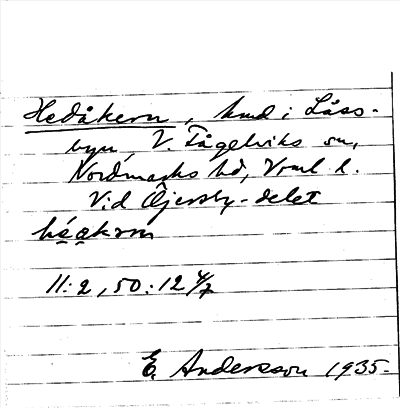 Hedåkern, hmd i Låss-
byn, V. Fågelviks sn,
Nordmarks hd, Vrml. l.
Vid Öjersby-delet
11:2, 50:12 4/7
E. Andersson 1935-